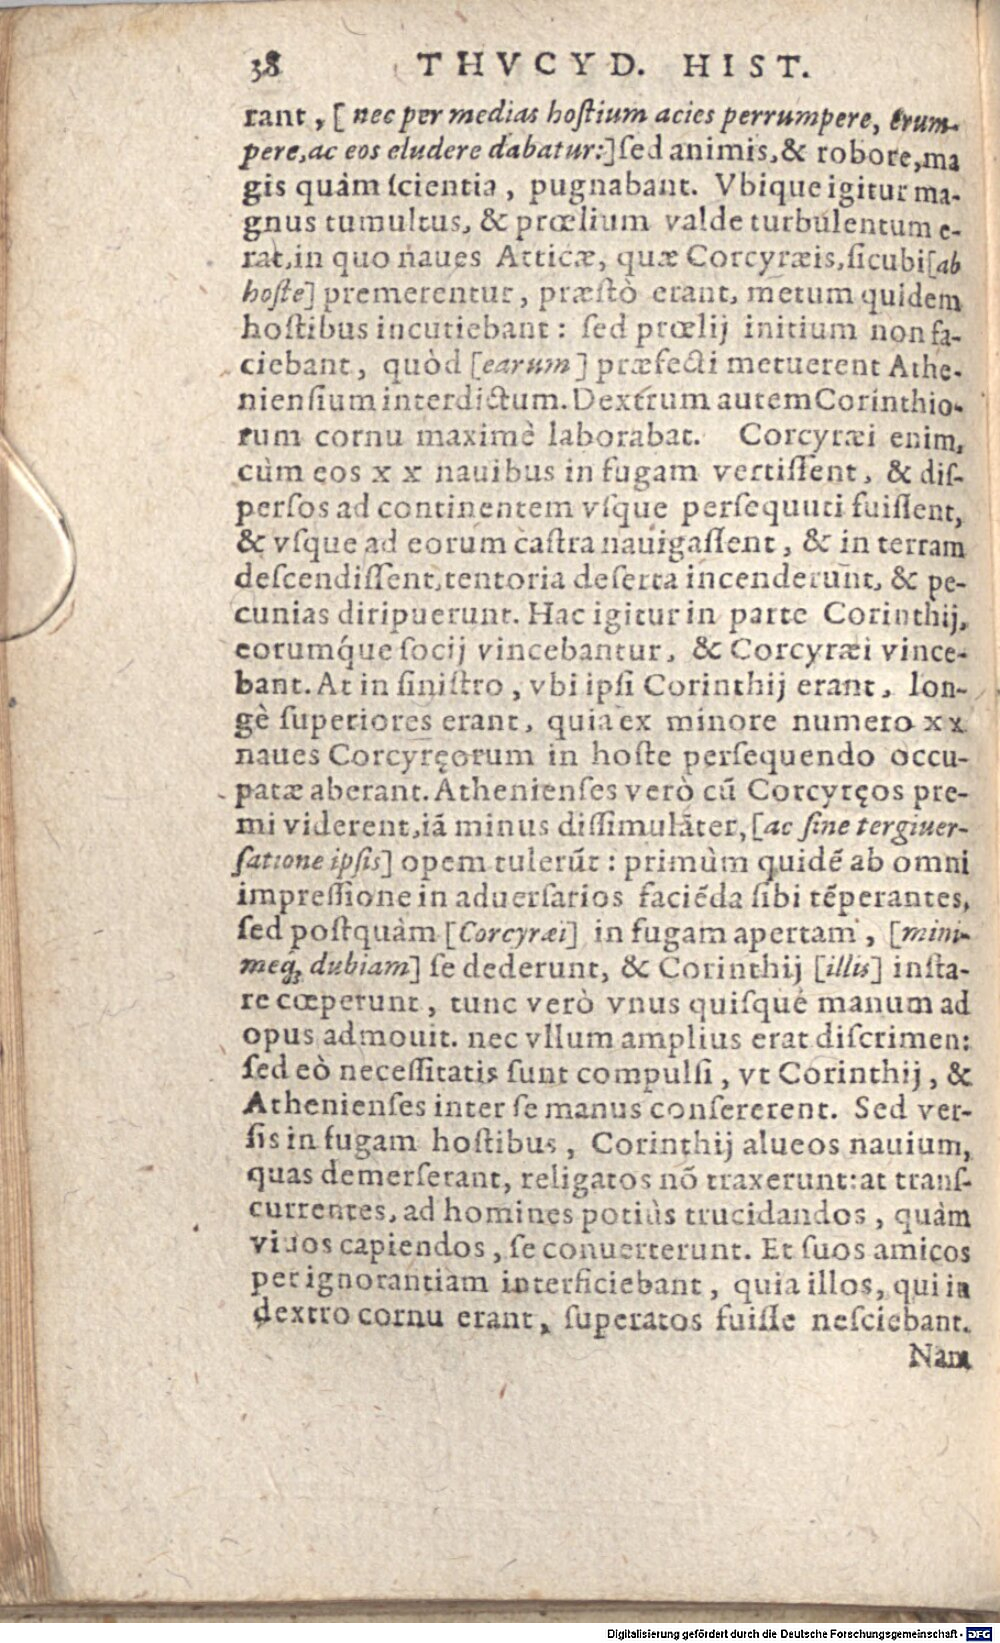 38 THVCYD. HIST.
rant, [ nec per medias hoſtium acies perrumpere, erum-
pere, ac eos eludere dabatur:] ſed animis, & robore, ma
gis quàm ſcientia, pugnabant. Vbique igitur ma-
gnus tumultus, & prœlium valde turbulentum e-
rat, in quo naues Atticæ, quæ Corcyræis, ſicubi [ab
hoſte] premerentur, præſtò erant, metum quidem
hoſtibus incutiebant: ſed prœlij initium non fa-
ciebant, quòd [earum] præfecti metuerent Athe-
nienſium interdictum. Dextrum autem Corinthio-
rum cornu maximè laborabat. Corcyræi enim,
cùm eos x x nauibus in fugam vertiſſent, & diſ-
perſos ad continentem vſque perſequuti fuiſſent,
& vſque ad eorum caſtra nauigaſſent, & in terram
deſcendiſſent, tentoria deſerta incenderunt, & pe-
cunias diripuerunt. Hac igitur in parte Corinthij,
eorumq́ue ſocij vincebantur, & Corcyræi vince-
bant. At in ſiniſtro, vbi ipſi Corinthij erant, lon-
gè ſuperiores erant, quia ex minore numero x x
naues Corcyręorum in hoſte perſequendo occu-
patæ aberant. Athenienſes verò cũ Corcyręos pre-
mi viderent, iã minus diſſimulãter, [ac ſine tergiuer-
ſatione ipſis] opem tulerũt: primùm quidẽ ab omni
impreſſione in aduerſarios faciẽda ſibi tẽperantes,
ſed poſtquàm [Corcyræi] in fugam apertam, [mini-
meq́; dubiam] ſe dederunt, & Corinthij [illis] inſta-
re cœperunt, tunc verò vnus quiſque manum ad
opus admouit. nec vllum amplius erat diſcrimen:
ſed eò neceſſitatis ſunt compulſi, vt Corinthij, &
Athenienſes inter ſe manus conſererent. Sed ver-
ſis in fugam hoſtibus, Corinthij alueos nauium,
quas demerſerant, religatos nõ traxerunt: at tranſ-
currentes, ad homines potiùs trucidandos, quàm
viuos capiendos, ſe conuerterunt. Et ſuos amicos
per ignorantiam interficiebant, quia illos, qui in
dextro cornu erant, ſuperatos fuiſſe neſciebant.
Nam
Digitalisierung gefördert durch die Deutsche Forschungsgemeinschaft - DFG